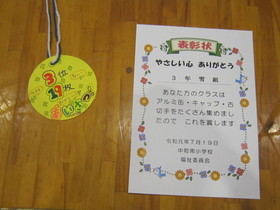 3位
19枚
表彰状
やさしい心 ありがとう
3年 雪組
あなた方のクラスは
アルミ缶・キャップ・古
切手をたくさん集めまし
たので これを賞します
令和元年7月19日
中町南小学校
福祉委員会